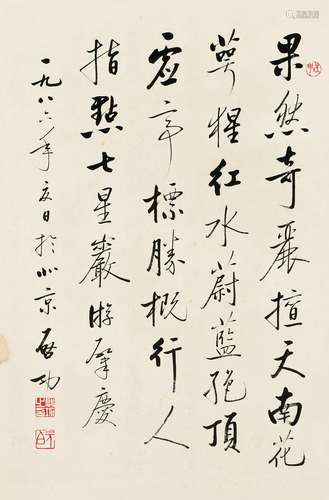 果然奇麗擅天南花
萼猩紅水蔚藍絕頂
虛亭標勝概行人
指點七星巖游肇慶
一九八六年夏日於北京啟功
元白